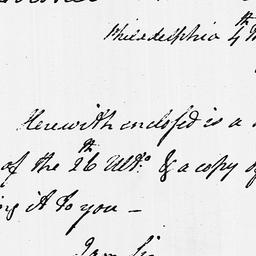 Philadelphia 4th
Herewith enclosed is a
of the 26th Ulto. & a copy of
ing it to you —
I am Sir